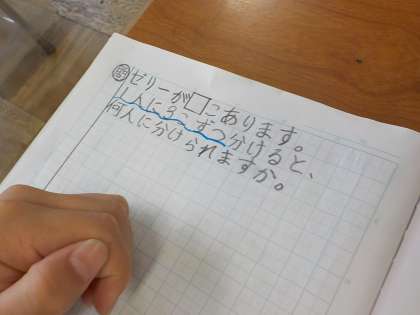 問 ゼリーが□こあります。
1人に3こずつ分けると、
何人に分けられますか。